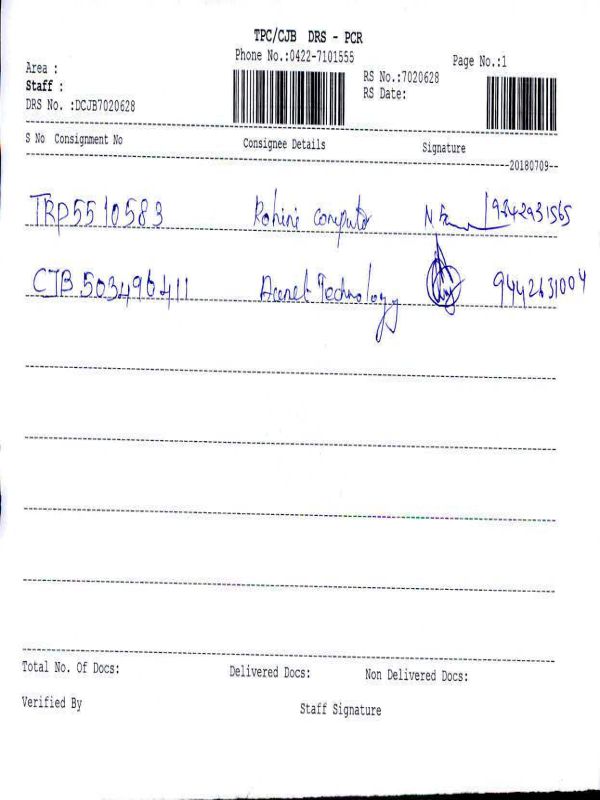 TPC/CJB DRS - PCR
Phone No.:0422-7101555
Page No.:1
Area :
RS No.:7020628
Staff :
RS Date:
DRS No. :DCJB7020628
S No Consignment No Consignee Details Signature
20180709
TRP5510583 Rohini computer 9342931565
CJB 503496411 Technology 9442631004
Total No. Of Docs: Delivered Docs: Non Delivered Docs:
Verified By Staff Signature